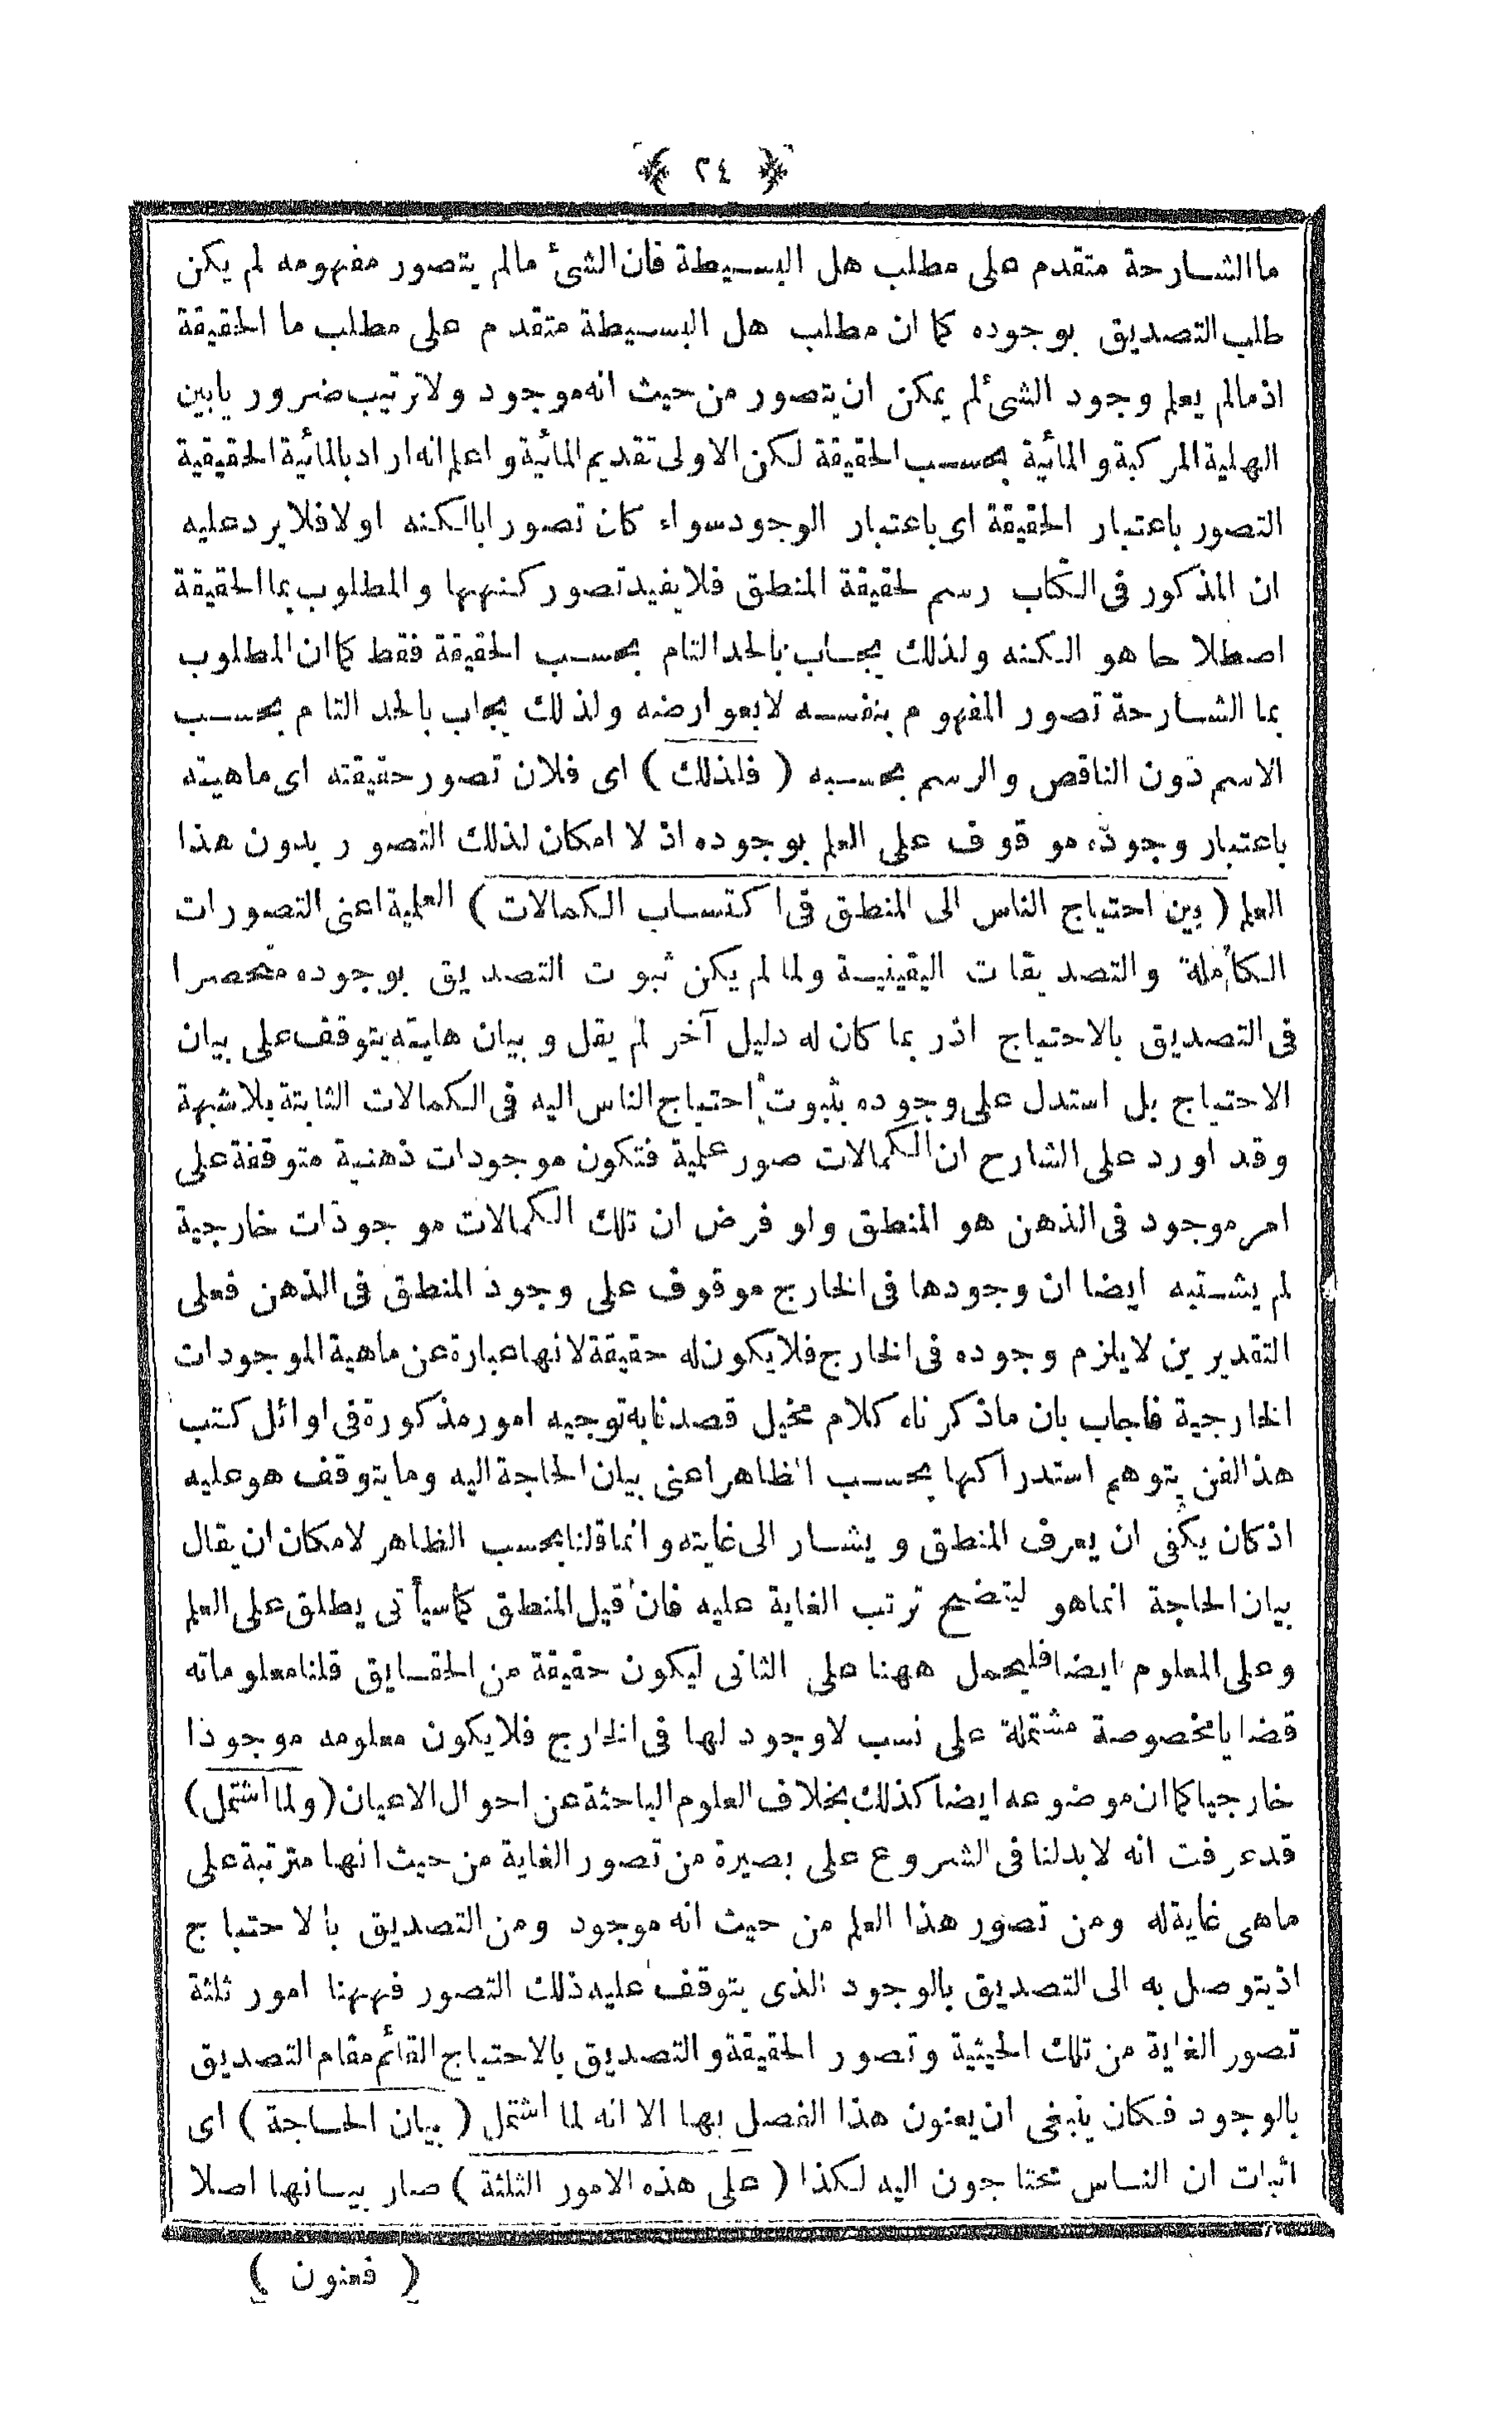 ﴿ ٢٤ ﴾
ما الشارحة متقدم على مطلب هل البسيطة فان الشئ مالم يتصور مفهومه لم يكن
طلب التصديق بوجوده كما ان مطلب هل البسيطة متقدم على مطلب ما الحقيقة
اذ مالم يعلم وجود الشئ لم يمكن ان يتصور من حيث انه موجود ولا ترتيب ضروريا بين
الهلية المركبة والمائية بحسب الحقيقة لكن الاولى تقديم المائية واعلم انه اراد بالمائية الحقيقية
التصور باعتبار الحقيقة اى باعتبار الوجود سواء كان تصورا بالكنه اولا فلا يرد عليه
ان المذكور فى الكتاب رسم لحقيقة المنطق فلا يفيد تصور كنهها والمطلوب بما الحقيقة
اصطلاحا هو الكنه ولذلك يجاب بالحد التام بحسب الحقيقة فقط كما ان المطلوب
بما الشارحة تصور المفهوم بنفسه لا بعوارضه ولذلك يجاب بالحد التام بحسب
الاسم دون الناقص والرسم بحسبه ( فلذلك ) اى فلان تصور حقيقته اى ماهيته
باعتبار وجوده موقوف على العلم بوجوده اذ لا امكان لذلك التصور بدون هذا
العلم ( بين احتياج الناس الى المنطق فى اكتساب الكمالات ) العلمية اعنى التصورات
الكاملة والتصديقات اليقينية ولما لم يكن ثبوت التصديق بوجوده منحصرا
فى التصديق بالاحتياج اذ ربما كان له دليل آخر لم يقل وبيان هليته يتوقف على بيان
الاحتياج بل استدل على وجوده بثبوت احتياج الناس اليه فى الكمالات الثابتة بلا شبهة
وقد اورد على الشارح ان الكمالات صور علمية فتكون موجودات ذهنية متوقفة على
امر موجود فى الذهن هو المنطق ولو فرض ان تلك الكمالات موجودات خارجية
لم يشتبه ايضا ان وجودها فى الخارج موقوف على وجود المنطق فى الذهن فعلى
التقديرين لا يلزم وجوده فى الخارج فلا يكون له حقيقة لانها عبارة عن ماهية الموجودات
الخارجية فاجاب بان ماذكرناه كلام مخيل قصدنا به توجيه امور مذكورة فى اوائل كتب
هذا الفن يتوهم استدراكها بحسب الظاهر اعنى بيان الحاجة اليه وما يتوقف هو عليه
اذ كان يكفى ان يعرف المنطق ويشار الى غايته وانما قلنا بحسب الظاهر لامكان ان يقال
بيان الحاجة انما هو ليتضح ترتب الغاية عليه فان قيل المنطق كما سيأتى يطلق على العلم
وعلى المعلوم ايضا فليحمل ههنا على الثانى ليكون حقيقة من الحقايق قلنا معلوماته
قضايا مخصوصة مشتملة على نسب لا وجود لها فى الخارج فلا يكون معلومه موجودا
خارجيا كما ان موضوعه ايضا كذلك بخلاف العلوم الباحثة عن احوال الاعيان ( ولما اشتمل )
قد عرفت انه لا بد لنا فى الشروع على بصيرة من تصور الغاية من حيث انها مترتبة على
ماهى غاية له ومن تصور هذا العلم من حيث انه موجود ومن التصديق بالاحتياج
اذ يتوصل به الى التصديق بالوجود الذى يتوقف عليه ذلك التصور فههنا امور ثلثة
تصور الغاية من تلك الحيثية وتصور الحقيقة والتصديق بالاحتياج القائم مقام التصديق
بالوجود فكان ينبغى ان يعنون هذا الفصل بها الا انه لما اشتمل ( بيان الحاجة ) اى
اثبات ان الناس محتاجون اليه لكذا ( على هذه الامور الثلثة ) صار بيانها اصلا
( فعنون )